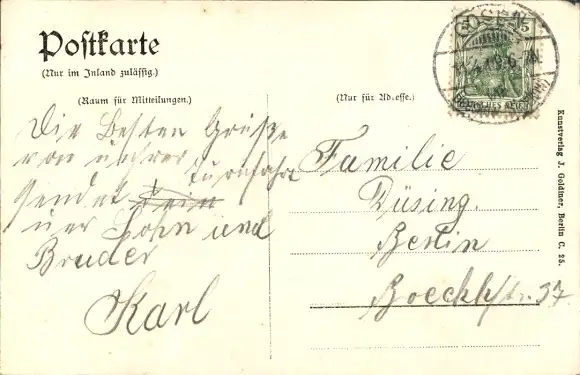 Postkarte
(Nur im Inland zulässig.)
(Raum für Mitteilungen.)
(Nur für Adresse.)
Die Besten Grüße
von
Turnfahrt
sendet
Sohn und
Bruder
Karl
Familie
Düsing.
Berlin
Boeckhstr. 37
5
DEUTSCHES REICH
Kunstverlag J. Goldiner, Berlin C. 25.